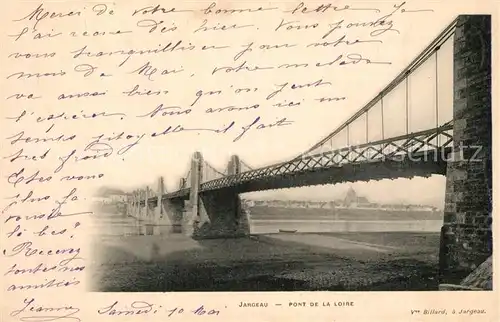 Merci de votre bonne lettre. Je
l'ai reçue dès hier. Vous pouvez
vous tranquilliser pour votre
mois de Mai, votre malade
va aussi bien qu'on peut
l'espérer. Nous avons ici un
temps pitoyable, il fait
très froid.
Etes vous
plus
Recevez
toutes nos
amitiés
Jeanne Samedi 10 Mai
JARGEAU — PONT DE LA LOIRE
Vve Billard, à Jargeau.